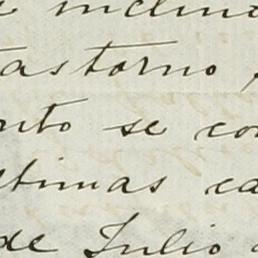 inclin
astorno
nto se co
timas ca
de Julio